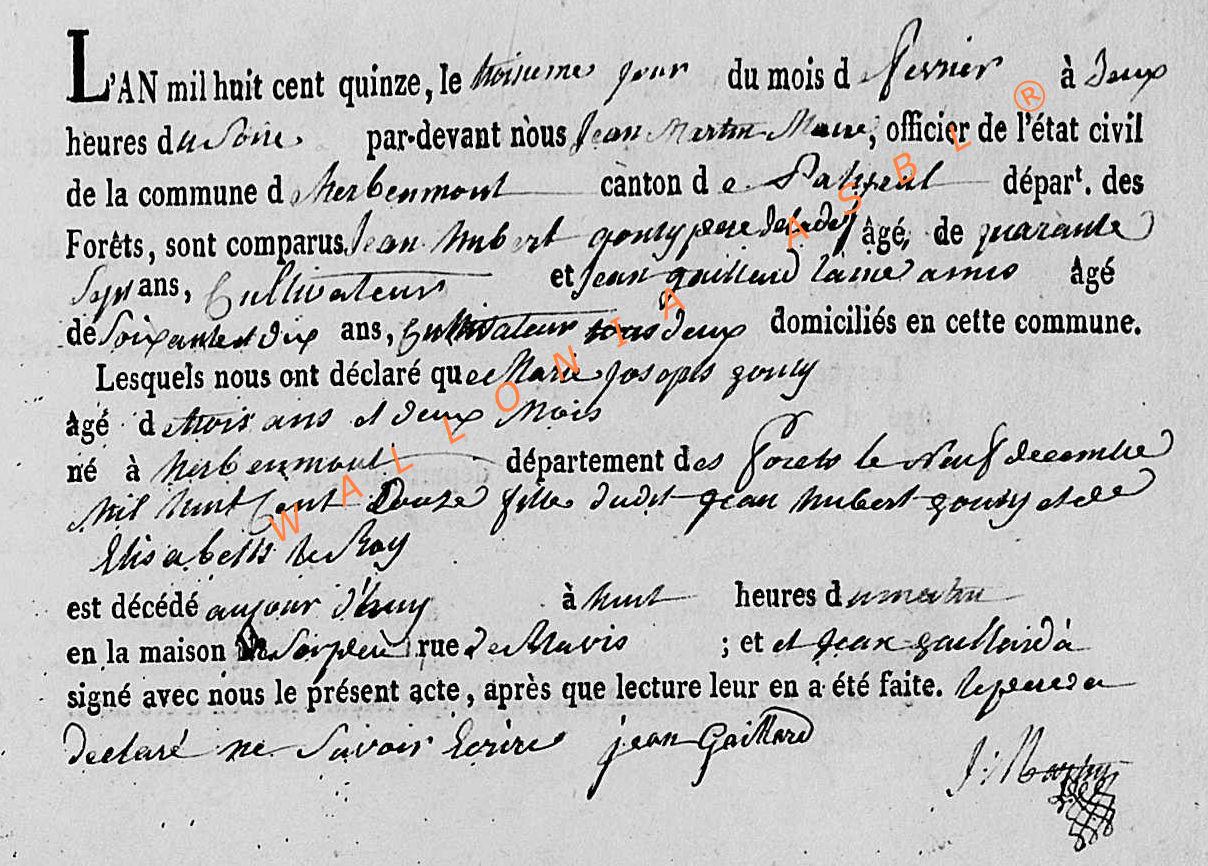 L'AN mil huit cent quinze, le troisieme jour du mois de fevrier à deux
heures du Soir par-devant nous Jean Martin Maire, officier de l'état civil
de la commune d herbeumont canton de Paliseul départ. des
Forêts, sont comparus Jean hubert goury pere âgé, de quarante
Sept ans, Cultivateur et Jean gaillard l'ainé amis âgé
de Soixante et dix ans, Cultivateur tous deux domiciliés en cette commune.
Lesquels nous ont déclaré que Marie joseph goury
âgé de trois ans et deux Mois
né à herbeumont département des forets le Neuf decembre
Mil huit Cent Douze fille dudit jean hubert goury et de
Elisabeth le Roy
est décédé aujour d'huy à huit heures du matin
en la maison de Son pere rue de Mavis ; et et jean gaillard à
signé avec nous le présent acte, après que lecture leur en a été faite. le pere a
declaré ne Savoir Ecrire jean Gaillard
J: Martin
WALLONIA ASBL ®